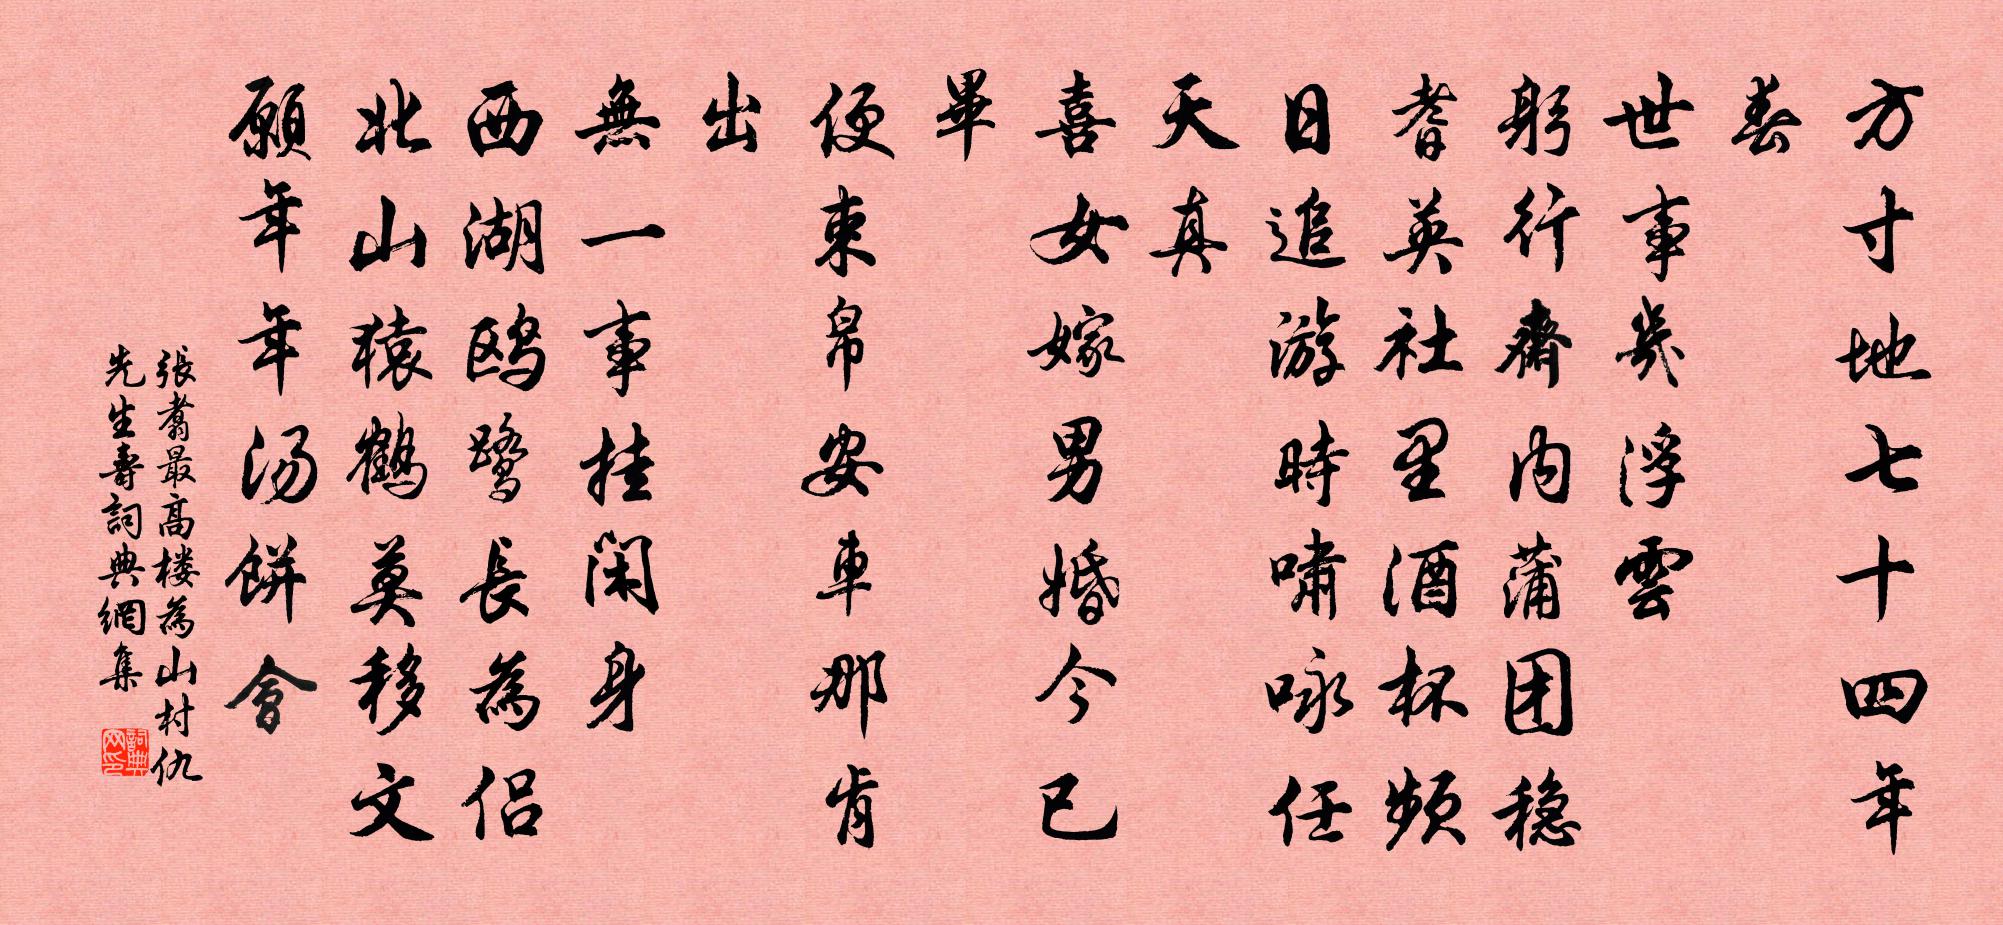 方寸地七十四年
春
世事幾浮雲
躬行齋内蒲团穏
耆英社里酒杯頻
日追游時嘯咏任
天真
喜女嫁男婚今已
畢
便束帛安車那肯
出
無一事挂闲身
西湖鸥鹭長為侣
北山猿鶴莫移文
願年年湯餅會
張翥最高楼為山村仇
先生壽詞典網集
詞典网印